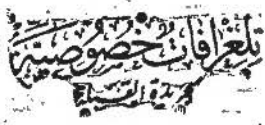 تلغرافات خصوصية
لجريدة القبلة